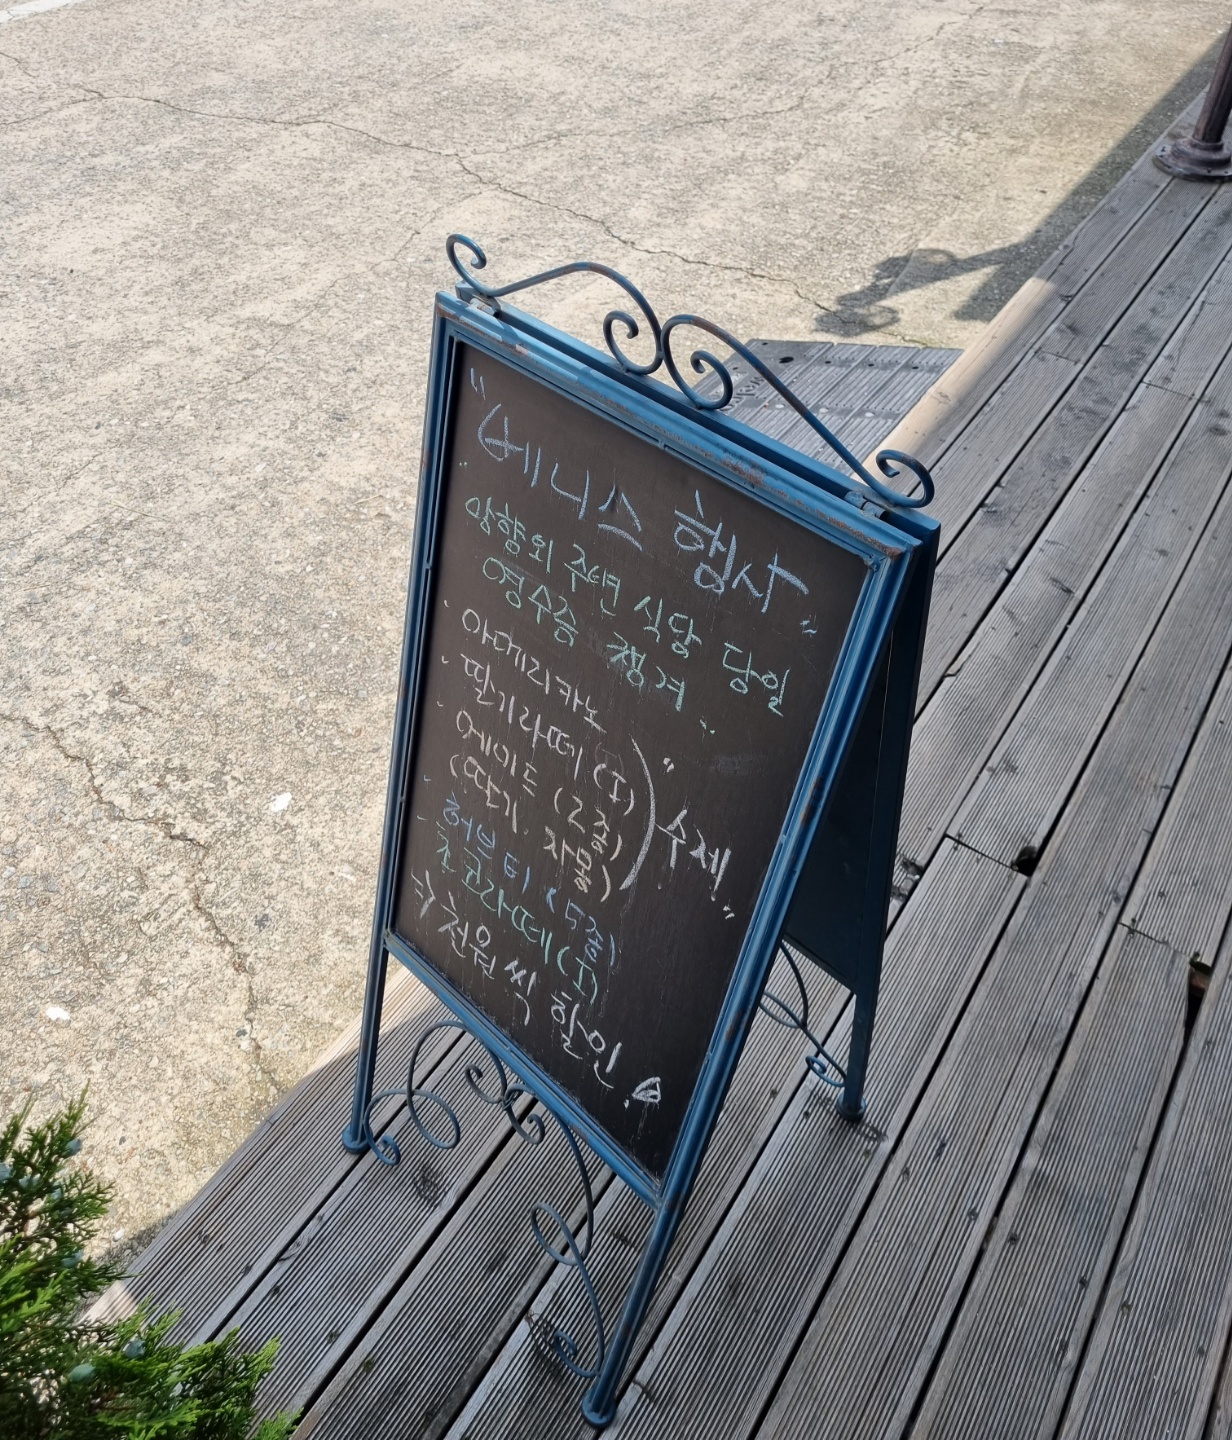 "베니스 행사"
앙향외 주변 식당 당일
영수증 챙겨..
· 아메리카노
· 딸기라떼 (I)
· 에이드 (2종)
(딸기, 자몽)
"수제"
· 허브티 (5종)
· 초코라떼 (I)
=> 천원씩 할인